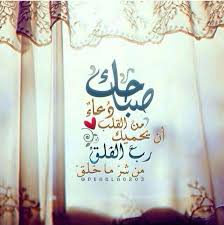 صباحك
دعاءٌ
من القلب
أن يحميك
ربّ الفلق
من شرّ ما خلق